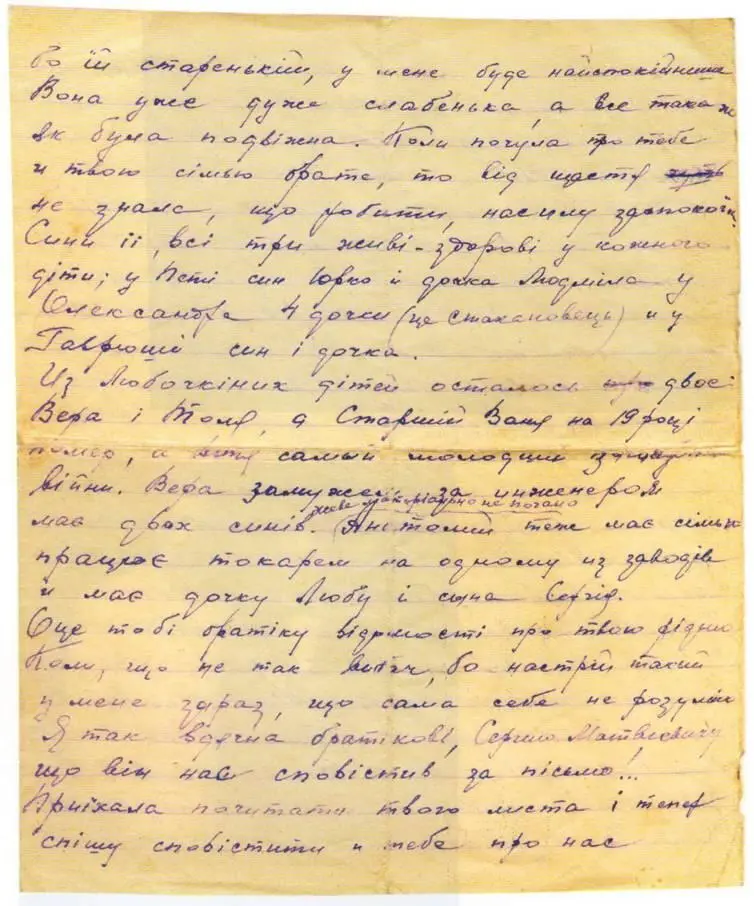 бо їй старенькій, у мене буде найспокійнише
Вона уже дуже слабенька, а все така ж
як була подвіжна. Коли почула про тебе
и твою сімью брате, то від щастя
не знала, що робити, насилу заспокоїв
Сини її, всі три живі-здорові у кожного
діти; у Петі син Юрко й дочка Людміла у
Олександра 4 дочки (це стахановець) и у
Гаврюші син і дочка.
Из Любочкіних дітей осталось двоє:
Вера і Толя, а Старший Ваня на 19 році
помер, а самый молодший
війни. Вера замужем за инженером
живе матеріально не погано
має двох синів. Анатолий теж має сімью
працює токарем на одному из заводів
й має дочку Любу і сына Сергія.
Оце тобі братіку відомості про твою рідню
Коли, що не так вибач, бо настрій такий
у мене зараз, що сама себе не розумію
Я так вдячна братікові, Сергию Матвієвичу
що він нас сповістив за письмо...
Приїхала почитати твого листа і тепер
спішу сповістити и тебе про нас